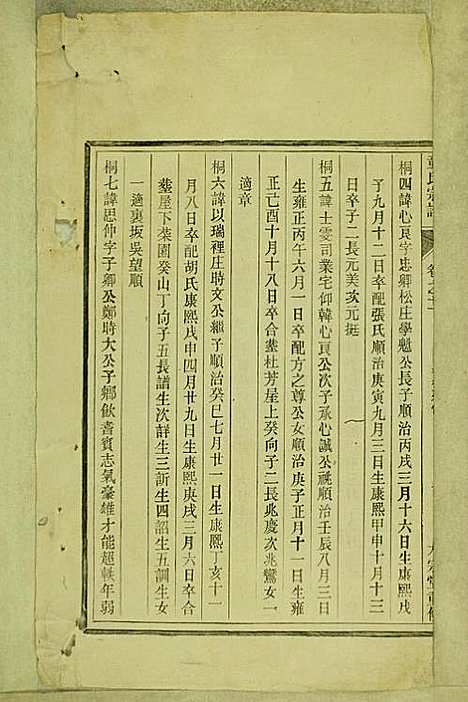 桐四諱心良字忠卿松庄學魁公長子順治丙戌三月十六日生康熙戊
子九月十二日卒配張氏順治庚寅九月三日生康熙甲申十月十三
日卒子二長元美次元挺
桐五諱士雯司業宅仰韓心良公次子承心誠公祧順治壬辰八月三日
生雍正丙午六月一日卒配方之尊公女順治庚子正月十一日生雍
正己酉十月十八日卒合葬杜芳屋上癸向子二長兆慶次兆鸞女一
適章
桐六諱以瑞裡庄時文公繼子順治癸巳七月廿一日生康熙丁亥十一
月八日卒配胡氏康熙丙申四月廿九日生康熙庚戌三月六日卒合
葬屋下菜園癸山丁向子五長譜生次詳生三訢生四詔生五調生女
一適裏坂吳望順
桐七諱思仲字子卿公鄭時大公子鄉飲耆賓志氣豪雄才能超軼年弱